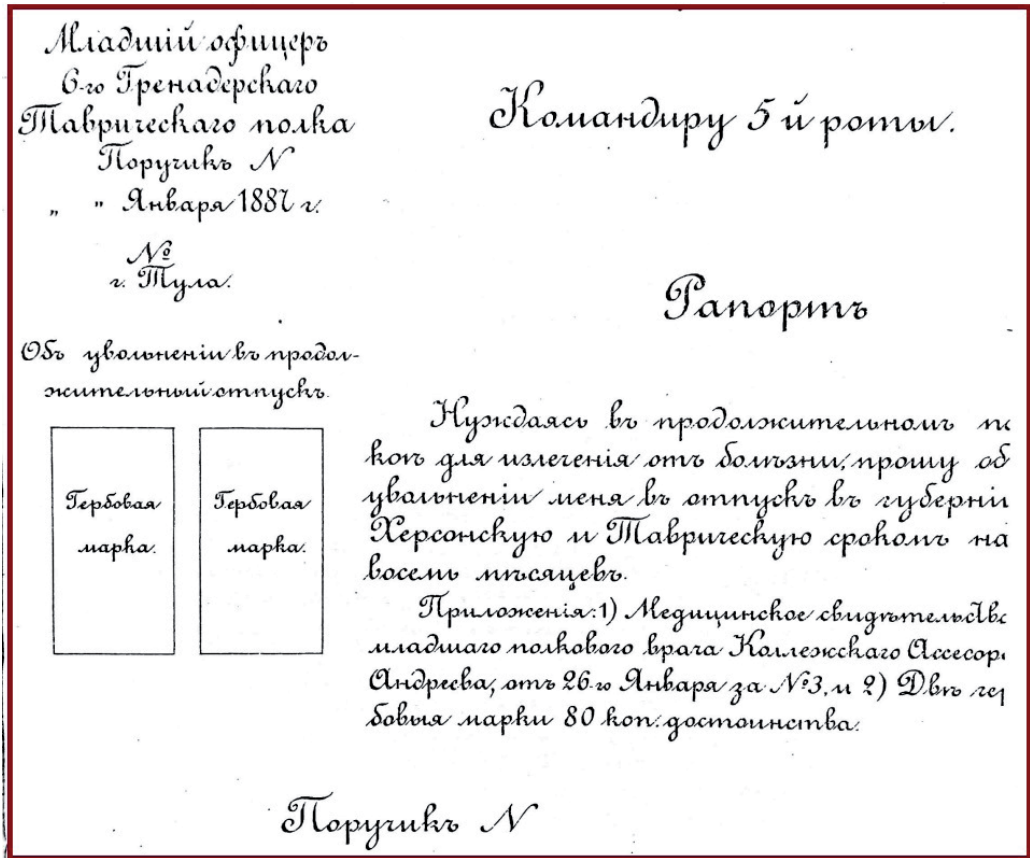 Младшій офицеръ
6-го Гренадерскаго
Таврическаго полка
Поручикъ N
„ " Января 1887 г.
№
г. Тула.
Командиру 5й роты.
Рапортъ
Объ увольненіи въ продол-
жительный отпускъ.
Гербовая
марка.
Гербовая
марка.
Нуждаясь въ продолжительномъ по
коѣ для излеченія отъ болѣзни, прошу об
увольненіи меня въ отпускъ въ губерніи
Херсонскую и Таврическую срокомъ на
восемь мѣсяцевъ.
Приложенія: 1) Медицинское свидѣтельств
младшаго полкового врача Коллежскаго Ассесор
Андреева, отъ 26-го Января за №3, и 2) Двѣ гер
бовыя марки 80 коп. достоинства.
Поручикъ N